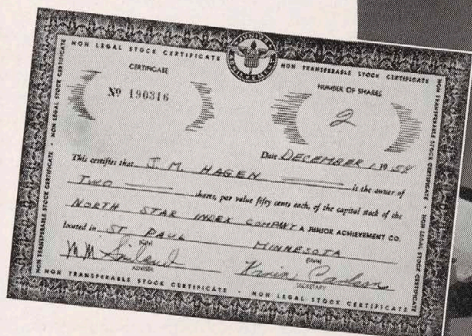 NON LEGAL STOCK CERTIFICATE
NON TRANSFERABLE STOCK CERTIFICATE
CERTIFICATE
NUMBER OF SHARES
Nº 190316
2
This certifies that J. M. HAGEN
Date DECEMBER 1 1958
is the owner of
TWO shares, par value fifty cents each, of the capital stock of the
NORTH STAR INDEX COMPANY A JUNIOR ACHIEVEMENT CO.
located in ST. PAUL MINNESOTA
ADVISER
SECRETARY
NON TRANSFERABLE STOCK CERTIFICATE
NON LEGAL STOCK CERTIFICATE